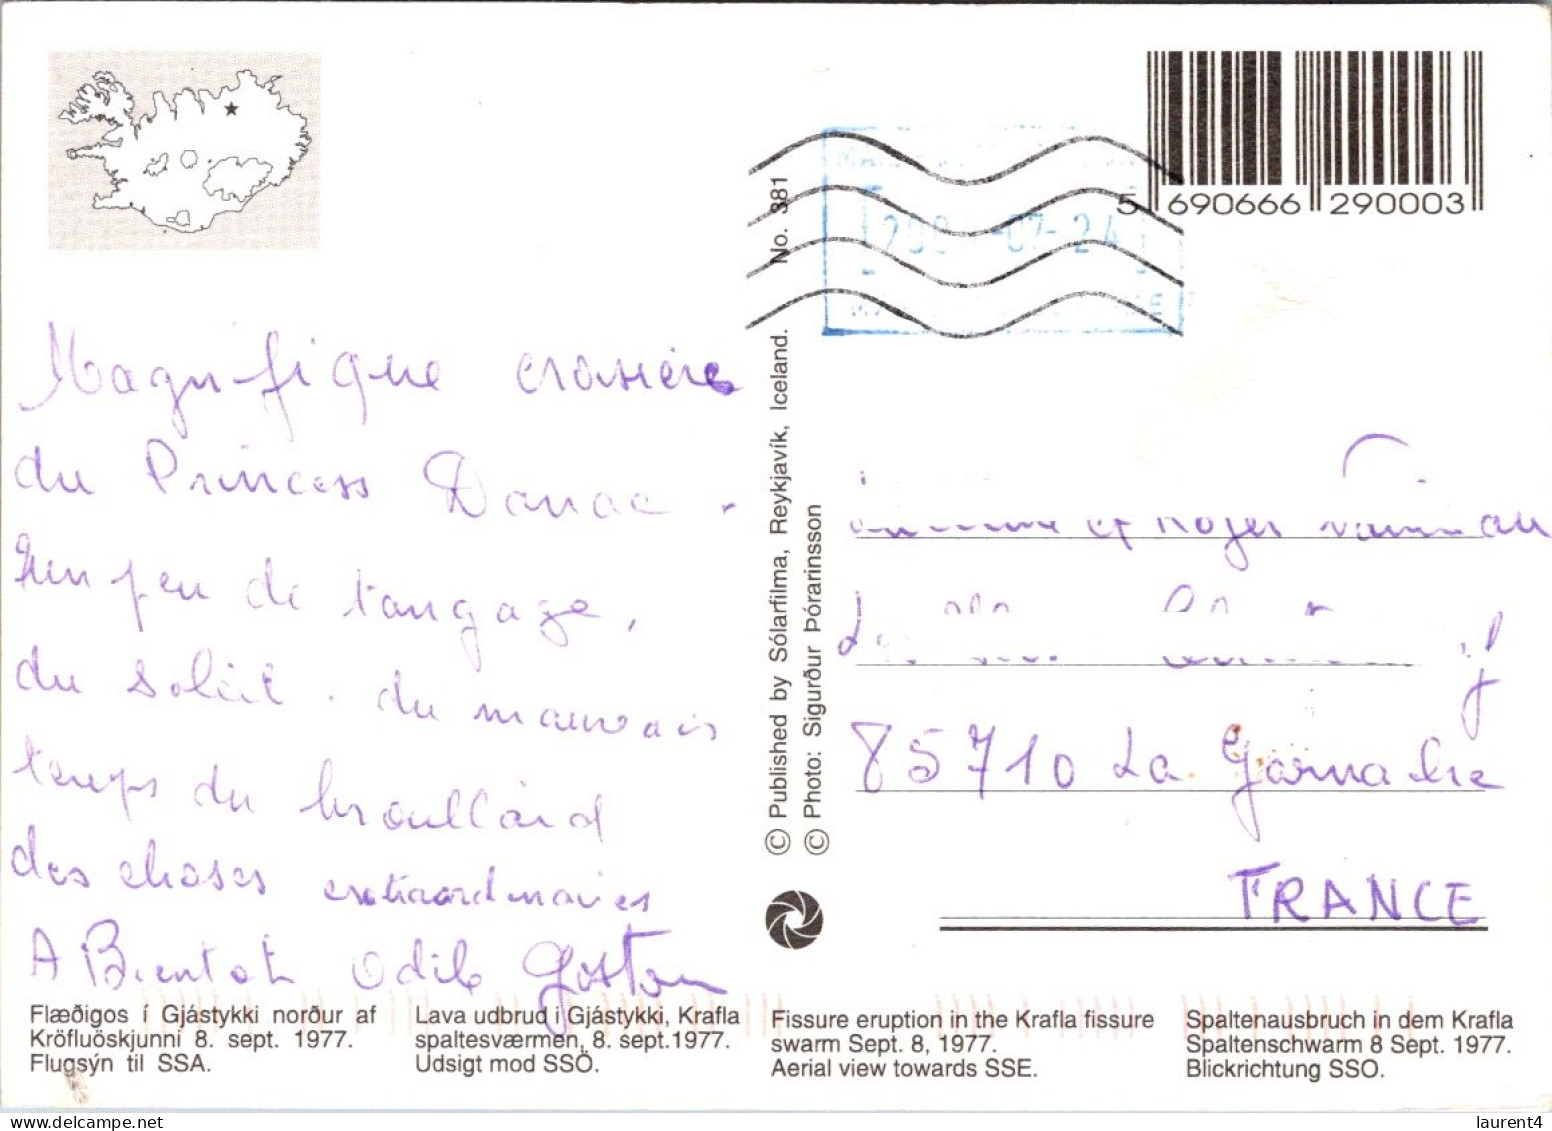 5 690666 290003
No. 381
07-24
© Published by Sólarfilma, Reykjavík, Iceland.
© Photo: Sigurður Þórarinsson
Magnifique croisière
du Princess Danae.
un peu de tangage,
du soleil. du mauvais
temps du brouillard
des choses extraordinaires
A Bientot Odile Gaston
et Roger
85710 La Garnache
FRANCE
Flæðigos í Gjástykki norður af
Kröfluöskjunni 8. sept. 1977.
Flugsýn til SSA.
Lava udbrud i Gjástykki, Krafla
spaltesværmen, 8. sept.1977.
Udsigt mod SSÖ.
Fissure eruption in the Krafla fissure
swarm Sept. 8, 1977.
Aerial view towards SSE.
Spaltenausbruch in dem Krafla
Spaltenschwarm 8 Sept. 1977.
Blickrichtung SSO.
laurent4